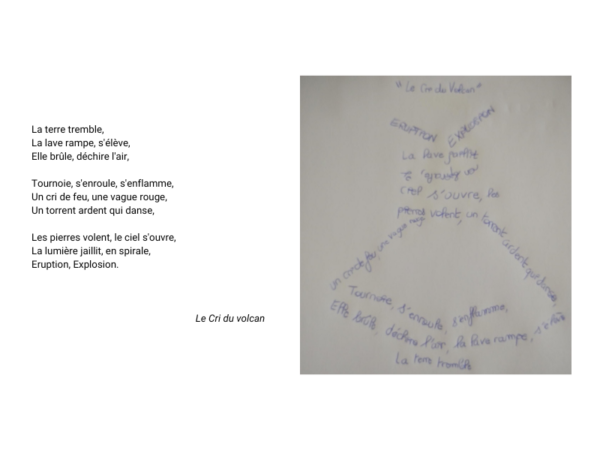 La terre tremble,
La lave rampe, s'élève,
Elle brûle, déchire l'air,
Tournoie, s'enroule, s'enflamme,
Un cri de feu, une vague rouge,
Un torrent ardent qui danse,
Les pierres volent, le ciel s'ouvre,
La lumière jaillit, en spirale,
Eruption, Explosion.
Le Cri du volcan
"Le Cri du Volcan"
ERUPTION EXPLOSION
La lave jaillit
ciel s'ouvre, les
pierres volent, un torrent ardent qui danse,
un cri de feu, une vague rouge
Tournoie, s'enroule, s'enflamme,
Elle brûle, déchire l'air, la lave rampe, s'élève
La terre tremble